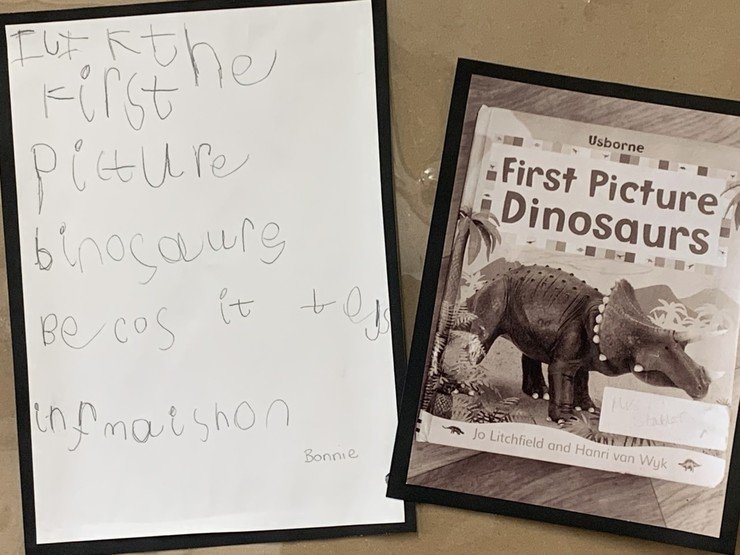 I lik the
first
picture
binosaurs
Becos it tels
infmaishon
Bonnie
Usborne
First Picture
Dinosaurs
Mrs
Jo Litchfield and Hanri van Wyk